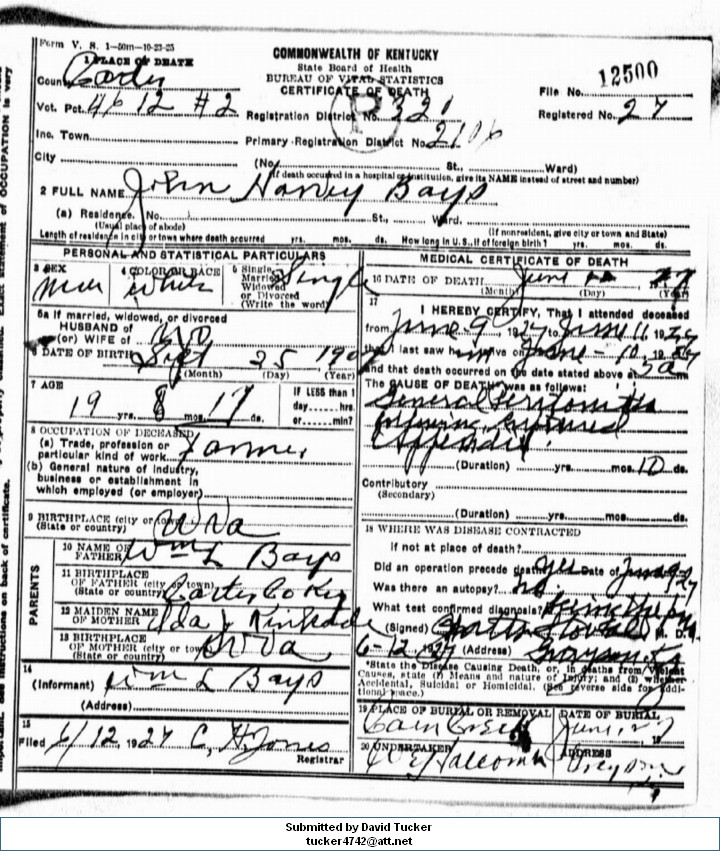 Form V. S. 1-50m-10-23-25
COMMONWEALTH OF KENTUCKY
State Board of Health
BUREAU OF VITAL STATISTICS
CERTIFICATE OF DEATH
1 PLACE OF DEATH
County Carter
File No. 12500
Vot. Pct. #2
Registration District No. 321
Registered No. 27
Inc. Town
Primary Registration District No. 2106
City
(No. St., Ward)
(If death occurred in a hospital or institution, give its NAME instead of street and number)
2 FULL NAME John Harvey Bays
(a) Residence. No. St., Ward.
(Usual place of abode) (If nonresident, give city or town and State)
Length of residence in city or town where death occurred yrs. mos. ds. How long in U. S., if of foreign birth? yrs. mos. ds.
PERSONAL AND STATISTICAL PARTICULARS
3 SEX Male
4 COLOR OR RACE White
5 Single, Married, Widowed or Divorced (Write the word) Single
5a If married, widowed, or divorced
HUSBAND of
(or) WIFE of
6 DATE OF BIRTH Sept 25 1907
(Month) (Day) (Year)
7 AGE
19 yrs. 8 mos. 17 ds.
IF LESS than 1
day hrs.
or min?
8 OCCUPATION OF DECEASED
(a) Trade, profession or
particular kind of work Farmer
(b) General nature of industry,
business or establishment in
which employed (or employer)
9 BIRTHPLACE (city or town) W Va
(State or country)
PARENTS
10 NAME OF
FATHER Wm L Bays
11 BIRTHPLACE
OF FATHER (city or town)
(State or country) Carter Co Ky
12 MAIDEN NAME
OF MOTHER Ida Kinkade
13 BIRTHPLACE
OF MOTHER (city or town) W Va
(State or country)
14
(Informant) Wm L Bays
(Address)
15
Filed 6/12, 1927 C. H. Jones
Registrar
MEDICAL CERTIFICATE OF DEATH
16 DATE OF DEATH June
(Month) (Day) (Year)
17
I HEREBY CERTIFY, That I attended deceased
from June 9, 1927 to June 11, 1927
that I last saw him alive on June 10, 1927
and that death occurred on the date stated above at
The CAUSE OF DEATH was as follows:
General Peritonitis
ruptured
Appendix.
(Duration) yrs. mos. 10 ds.
Contributory
(Secondary)
(Duration) yrs. mos. ds.
18 WHERE WAS DISEASE CONTRACTED
if not at place of death?
Did an operation precede death? yes Date of June
Was there an autopsy? no.
What test confirmed diagnosis?
(Signed) Stovall M. D.
6-12, 1927 (Address) Grayson Ky
*State the Disease Causing Death, or, in deaths from Violent
Causes, state (1) Means and nature of Injury; and (2) whether
Accidental, Suicidal or Homicidal. (See reverse side for additional space.)
19 PLACE OF BURIAL OR REMOVAL
DATE OF BURIAL
June
20 UNDERTAKER
ADDRESS
Grayson
Submitted by David Tucker
tucker4742@att.net